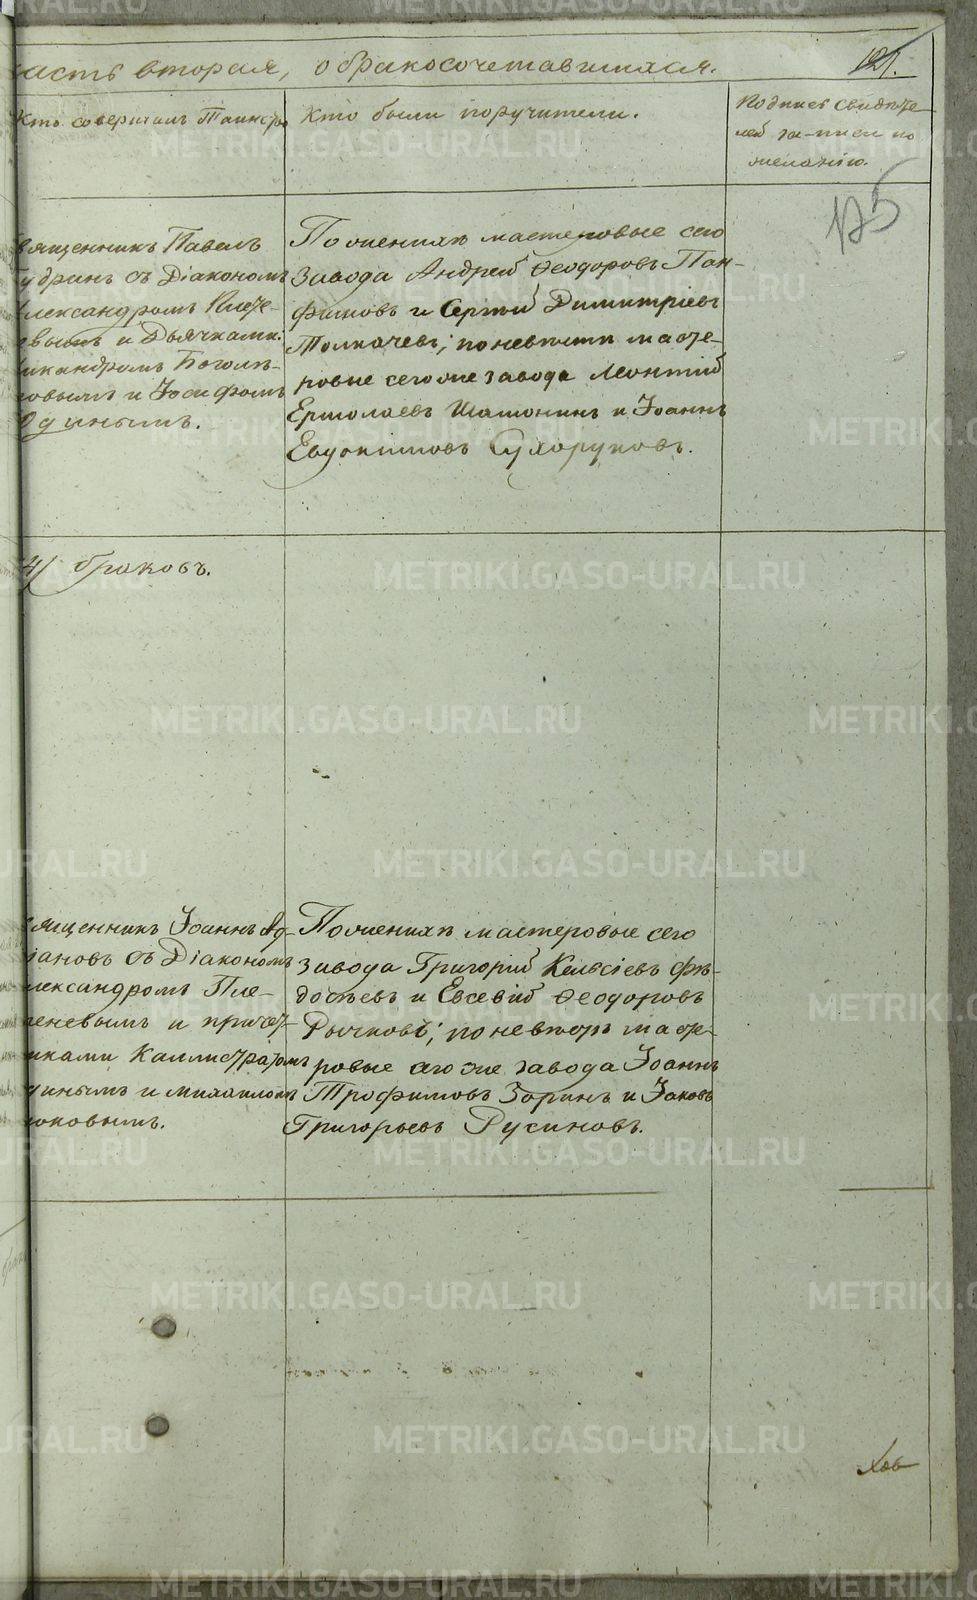 асть вторая, о бракосочетавшихся.
121.
Кто совершалъ Таинство
Кто были поручители.
Подпись свидѣте-
лей за-писи по
желанію.
125
вященникъ Павелъ
удринъ съ Діакономъ
лександромъ Плеше-
вымъ и Дьячками:
икандромъ Боголѣ-
ювымъ и Іосифомъ
Юдинымъ.
По женихѣ мастеровые сего
завода Андрей Ѳеодоровъ Пан-
филовъ и Сергій Димитріевъ
Толкачевъ; по невѣстѣ масте-
ровые сего же завода Леонтій
Ермолаевъ Шамонинъ и Іоаннъ
Евдокимовъ Сухоруковъ.
4) браковъ.
вященникъ Іоаннъ Ад-
іановъ съ Діакономъ
лександромъ Пле-
еневымъ и причет-
иками Каллистратомъ
инымъ и Михаиломъ
оковымъ.
По женихѣ мастеровые сего
завода Григорій Кельсіевъ Фѣ-
досѣевъ и Евсевій Ѳеодоровъ
Рычковъ; по невѣстѣ масте-
ровые сего же завода Іоаннъ
Трофимовъ Зоринъ и Іаковъ
Григорьевъ Русиновъ.
METRIKI.GASO-URAL.RU